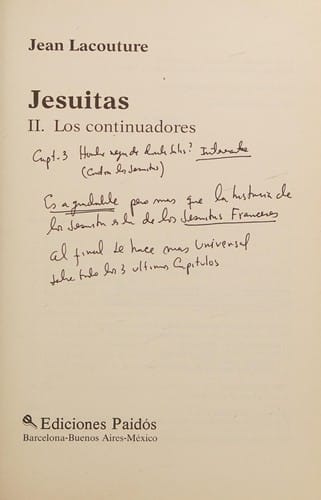 Jean Lacouture
Jesuitas
II. Los continuadores
Capt. 3 Hombre negro de donde salis? Interesante
(Contra los Jesuitas)
Es agradable pero mas que la historia de
los Jesuitas es la de los Jesuitas Franceses
al final se hace mas universal
sobre todo los 3 ultimos Capitulos
Ediciones Paidós
Barcelona-Buenos Aires-México